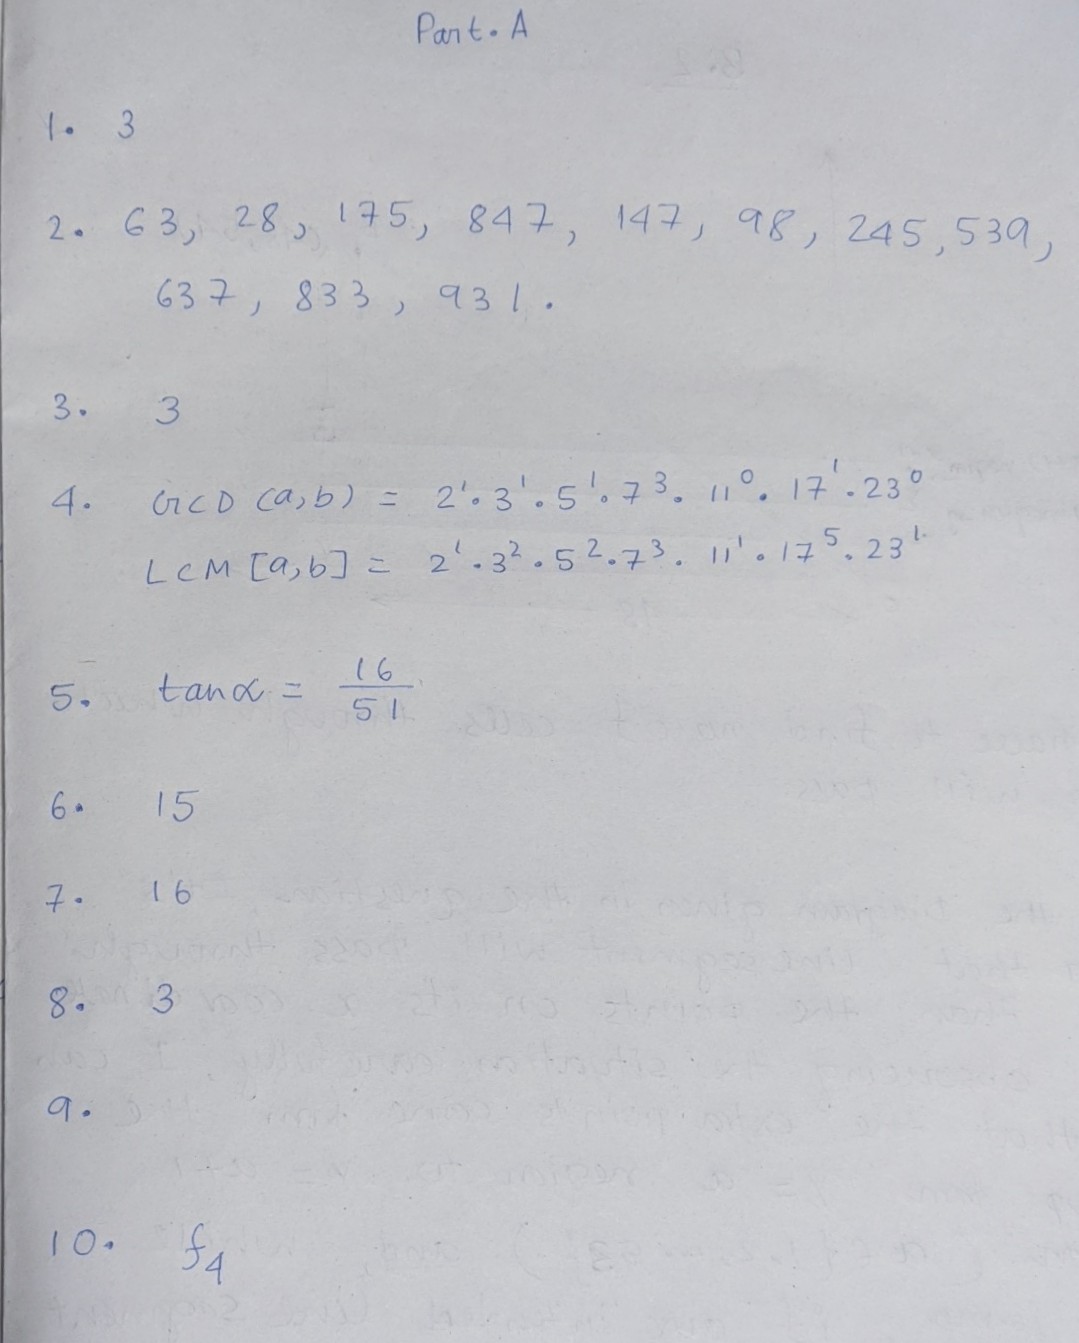 Part. A
1. 3
2. 63, 28, 175, 847, 147, 98, 245, 539,
637, 833, 931.
3. 3
4. GCD (a,b) = 2¹·3¹·5¹·7³·11⁰·17¹·23⁰
LCM [a,b] = 2¹·3²·5²·7³·11¹·17⁵·23¹
5. tanα = 16/51
6. 15
7. 16
8. 3
9.
10. f₄